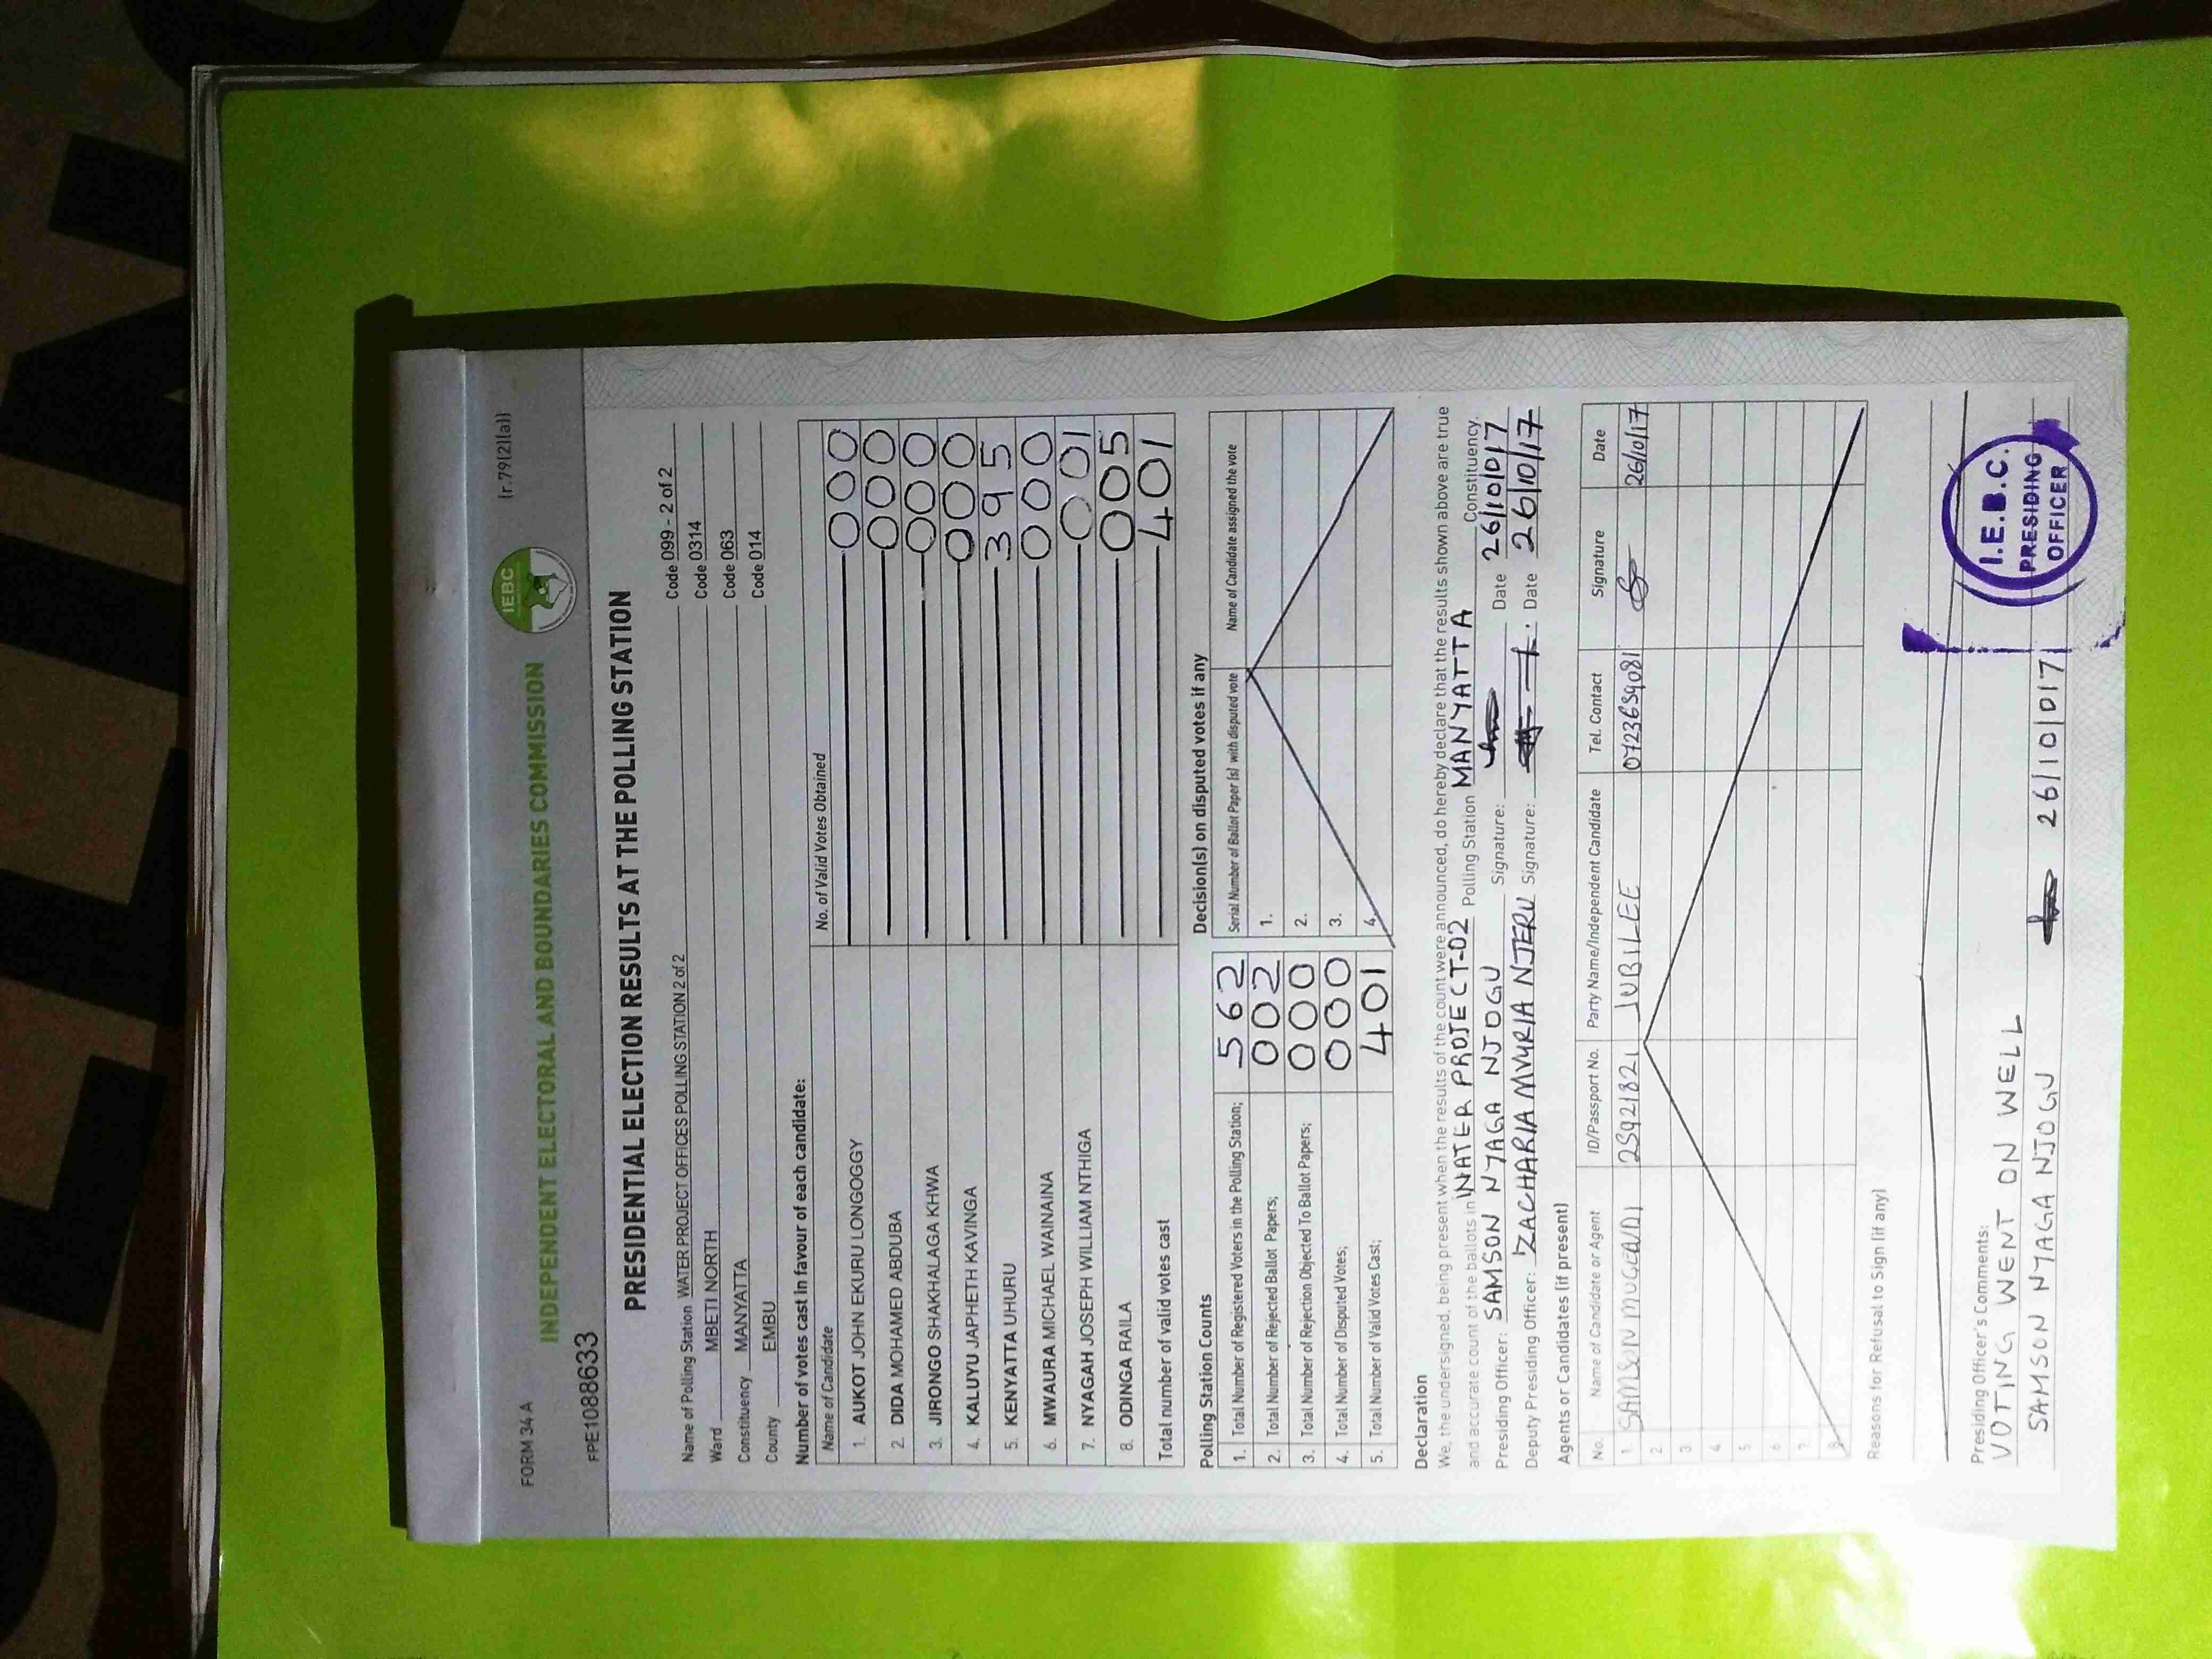 FORM 34 A
(r.79(2)(a))
INDEPENDENT ELECTORAL AND BOUNDARIES COMMISSION
IEBC
FPE1088633
PRESIDENTIAL ELECTION RESULTS AT THE POLLING STATION
Name of Polling Station WATER PROJECT OFFICES POLLING STATION 2 of 2 Code 099 - 2 of 2
Ward MBETI NORTH Code 0314
Constituency MANYATTA Code 063
County EMBU Code 014
Number of votes cast in favour of each candidate:
Name of Candidate No. of Valid Votes Obtained
1. AUKOT JOHN EKURU LONGOGGY 000
2. DIDA MOHAMED ABDUBA 000
3. JIRONGO SHAKHALAGA KHWA 000
4. KALUYU JAPHETH KAVINGA 000
5. KENYATTA UHURU 395
6. MWAURA MICHAEL WAINAINA 000
7. NYAGAH JOSEPH WILLIAM NTHIGA 001
8. ODINGA RAILA 005
Total number of valid votes cast 401
Polling Station Counts
1. Total Number of Registered Voters in the Polling Station; 562
2. Total Number of Rejected Ballot Papers; 002
3. Total Number of Rejection Objected To Ballot Papers; 000
4. Total Number of Disputed Votes; 000
5. Total Number of Valid Votes Cast; 401
Decision(s) on disputed votes if any
Serial Number of Ballot Paper (s) with disputed vote Name of Candidate assigned the vote
1.
2.
3.
4.
Declaration
We, the undersigned, being present when the results of the count were announced, do hereby declare that the results shown above are true
and accurate count of the ballots in WATER PROJECT-02 Polling Station MANYATTA Constituency.
Presiding Officer: SAMSON NJAGA NJOGU Signature: Date 26/10/017
Deputy Presiding Officer: ZACHARIA MVURIA NJERU Signature: Date 26/10/17
Agents or Candidates (if present)
No. Name of Candidate or Agent ID/Passport No. Party Name/Independent Candidate Tel. Contact Signature Date
1. SAMSON 23921821 JUBILEE 0723639081 26/10/17
2
3.
4
5
6
7.
8.
Reasons for Refusal to Sign (if any)
Presiding Officer's Comments:
VOTING WENT ON WELL
SAMSON NJAGA NJOGU 26/10/017
I.E.B.C.
PRESIDING
OFFICER